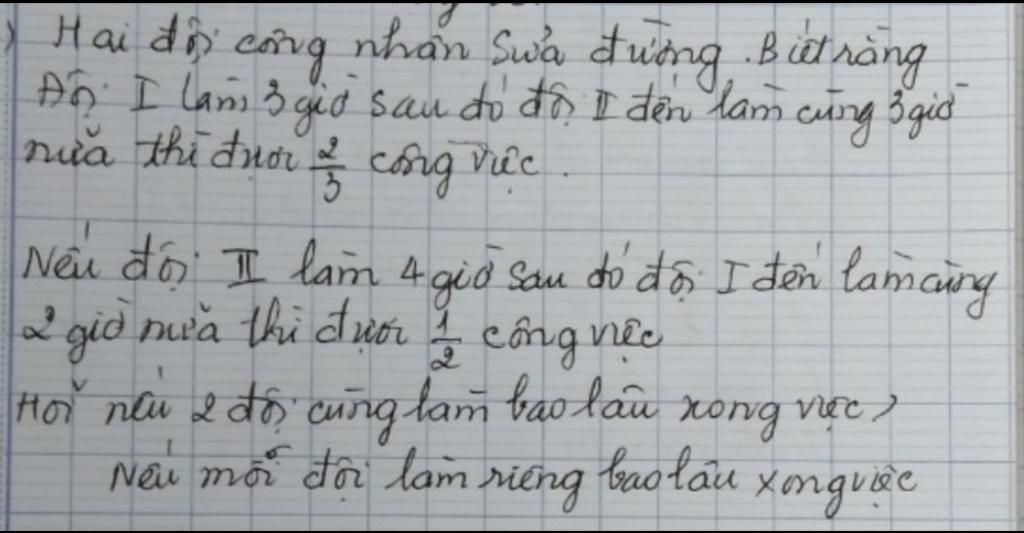 Hai đội công nhân sửa đường. Biết rằng
Đội I làm 3 giờ sau đó đội II đến làm cùng 3 giờ
nữa thì được 2/3 công việc.
Nếu đội II làm 4 giờ sau đó đội I đến làm cùng
2 giờ nữa thì được 1/2 công việc
Hỏi nếu 2 đội cùng làm bao lâu xong việc?
Nếu mỗi đội làm riêng bao lâu xong việc